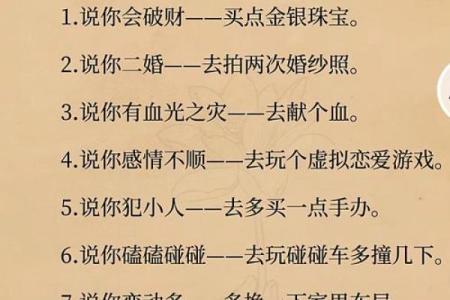 1.说你会破财——买点金银珠宝。
2.说你二婚——去拍两次婚纱照。
3.说你有血光之灾——去献个血。
4.说你感情不顺——去玩个虚拟恋爱游戏。
5.说你犯小人——去多买一点手办。
6.说你磕磕碰碰——去玩碰碰车多撞几下。
7.说你变动多——多换